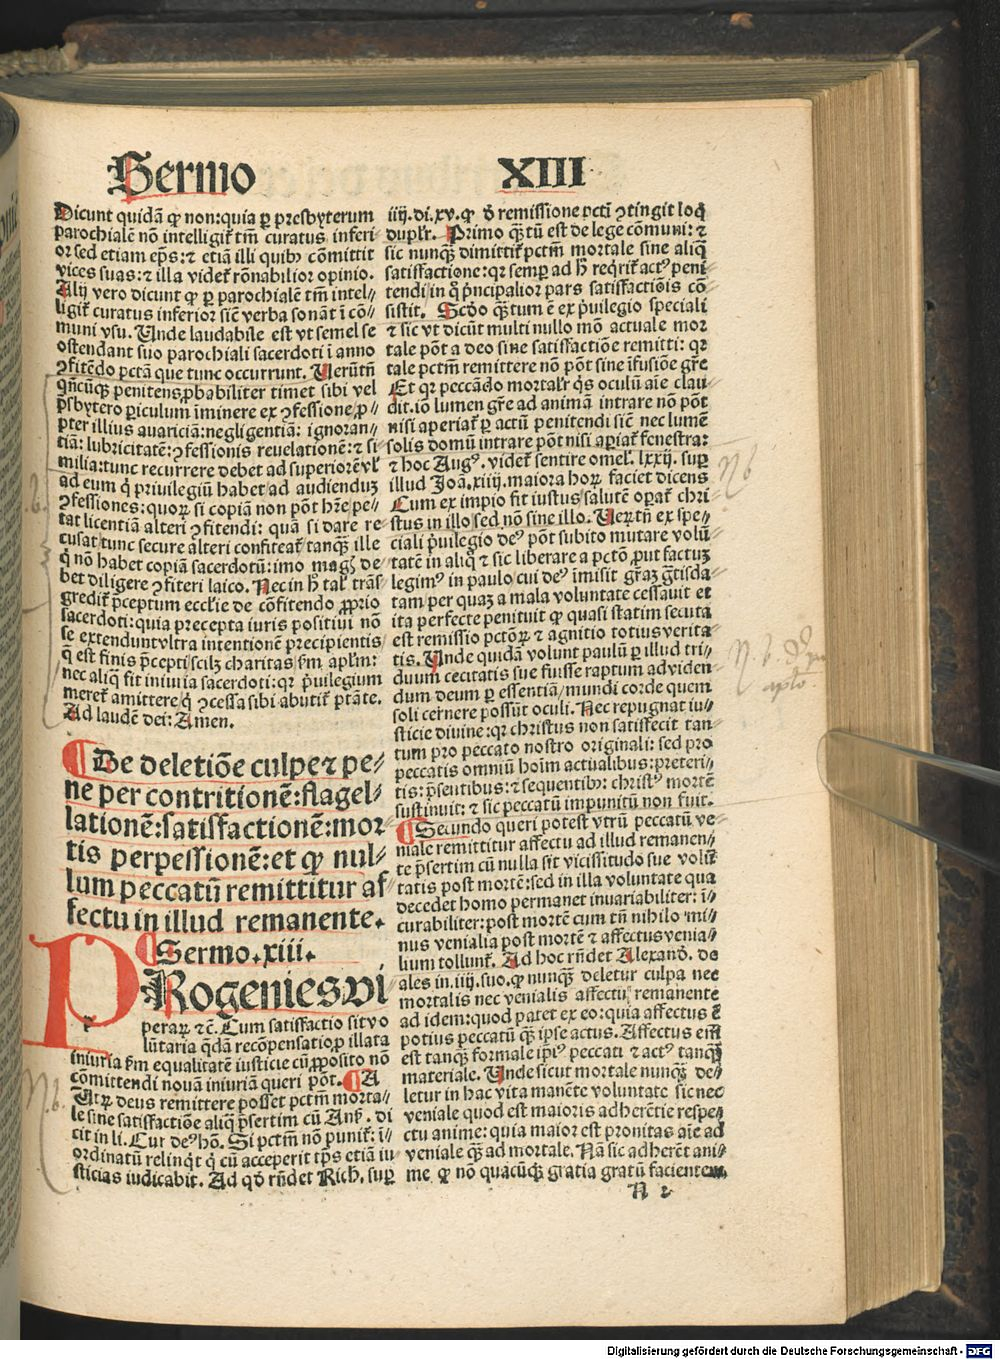 Sermo XIII
Dicunt quidā ꝙ non: quia ꝑ presbyterum
parochialē nō intelligiť tm̄ curatus inferi
or sed etiam ep̄s: ⁊ etiā illi quibꝰ cōmittit
vices suas: ⁊ illa videť rōnabilior opinio.
Alij vero dicunt ꝙ ꝑ parochialē tm̄ intel⸗
ligiť curatus inferior siē verba sonāt ī cō⸗
muni vsu. Unde laudabile est vt semel se
ostendant suo parochiali sacerdoti ī anno
ꝯfitēdo pctā que tunc occurrunt. Uerūtn̄
qn̄cūqꝫ penitens ꝓbabiliter timet sibi vel
p̄sbytero periculum īminere ex ꝯfessione ꝓ⸗
pter illius auariciā: negligentiā: ignoran⸗
tiā: lubricitatē: ꝯfessionis reuelationē: ⁊ si
milia: tunc recurrere debet ad superiorē vľ
ad eum q̇ priuilegiū habet ad audienduꝫ
ꝯfessiones: quoꝝ si copiā non pōt hr̄e pe⸗
tat licentiā alteri ꝯfitendi: quā si dare re
cusat tunc secure alteri confiteať tanqꝫ ille
q̇ nō habet copiā sacerdotū: imo magꝭ de
bet diligere ꝯfiteri laico. Nec in h̄ taľ trās
grediť p̄ceptum eccl̄ie de cōfitendo ꝓprio
sacerdoti: quia precepta iuris positiui nō
se extendunt vltra intentionē precipientis
q̄ est finis p̄cepti scilꝫ charitas ẜm apl̄m:
nec aliq̇ fit iniuria sacerdoti: qꝛ ṗuilegium
mereť amittere q̇ ꝯcessa sibi abutiť ptāte.
Ad laudē dei: Amen.
¶ De deletiōe culpe ⁊ pe⸗
ne per contritionē: flagel⸗
lationē: satisfactionē: mor⸗
tis perpessionē: et ꝙ nul⸗
lum peccatū remittitur af⸗
fectu in illud remanente.
¶ Sermo. xiii.
PRogenies vi
peraꝝ ⁊c̄. Cum satisfactio sit vo
lūtaria q̄dā recōpensatio ꝓ illata
iniuria ẜm equalitatē iusticie cū ꝓposito nō
cōmittendi nouā iniuriā queri pōt. ¶ A
Utꝝ deus remittere posset pctm̄ morta⸗
le sine satisfactiōe aliq̇ p̄sertim cū Anẜ. di
cit in li. Cur deꝰ hō. Si pctm̄ nō puniť: ī⸗
ordinatū relinq̇t q̇ cū acceperit tp̄s etiā iu⸗
sticias iudicabit. Ad qd̓ rn̄det Rich. suꝑ
iiij. di. xv. ꝙ d̓ remissione pcti ꝯtingit loq̇
duplr̄. Primo qꝫtū est de lege cōmuni: ⁊
sic nunqꝫ dimittiť pctm̄ mortale sine aliq̇
satisfactione: qꝛ semꝑ ad h̄ req̇riť actꝰ peni⸗
tendi in q̇ ṗncipalior pars satisfactiōis cō⸗
sistit. Scd̓o qꝫtum ē ex ṗuilegio speciali
⁊ sic vt dicūt multi nullo mō actuale mor
tale pōt a deo sine satisfactiōe remitti: qꝛ
tale pctm̄ remittere nō pōt sine īfusiōe gr̄e
Et qꝛ peccādo mortalr̄ q̇s oculū aīe clau⸗
dit. iō lumen gr̄e ad animā intrare nō pōt
nisi aperiať ꝑ actū penitendi siē nec lumē
solis domū intrare pōt nisi aꝑiať fenestra:
⁊ hoc Augꝰ. videť sentire omel̓. lxxij. suꝑ
illud Joā. xiiij. maiora hoꝝ faciet dicens
Cum ex impio fit iustus salutē oꝑať chri⸗
stus in illo sed nō sine illo. Uerūtn̄ ex spe⸗
ciali ṗuilegio deꝰ pōt subito mutare volū⸗
tatē in aliq̇ ⁊ sic liberare a pctō ꝓut factuꝫ
legimꝰ in paulo cui deꝰ īmisit gr̄aꝫ gꝛ̄tis da⸗
tam per quaꝫ a mala voluntate cessauit et
ita perfecte penituit ꝙ quasi statim secuta
est remissio pctōꝝ ⁊ agnitio totius verita⸗
tis. Unde quidā volunt paulū ꝑ illud tri⸗
duum cecitatis sue fuisse raptum ad viden⸗
dum deum ꝑ essentiā mundi corde quem
soli cernere possūt oculi. Nec repugnat iu⸗
sticie diuine: qꝛ christus non satisfecit tan⸗
tum pro peccato nostro originali: sed pro
peccatis omniū hoīm actualibus: preteri⸗
tis: p̄sentibus: ⁊ sequentibꝰ: christꝰ mortē
sustinuit: ⁊ sic peccatū impunitū non fuit.
¶ Secundo queri potest vtrū peccatū ve⸗
niale remittitur affectu ad illud remanen⸗
te p̄sertim cū nulla sit vicissitudo sue volū⸗
tatis post mortē: sed in illa voluntate qua
decedet homo permanet inuariabiliter: ī⸗
curabiliter: post mortē cum tn̄ nihilo mi⸗
nus venialia post mortē ⁊ affectus venia⸗
lium tollunť. Ad hoc rn̄det Alexand̓. de
ales in. iiij. suo. ꝙ nunqꝫ deletur culpa nec
mortalis nec venialis affectu remanente
ad idem: quod patet ex eo: quia affectus ē
potius peccatū qꝫ ipse actus. Affectus eīn̄
est tanqꝫ formale ip̄iꝰ peccati ⁊ actꝰ tanqꝫ
materiale. Unde sicut mortale nunqꝫ de⸗
letur in hac vita manēte voluntate sic nec
veniale quod est maioris adherētie respe⸗
ctu anime: quia maior est pronitas aīe ad
veniale qꝫ ad mortale. Nā sic adherēt ani⸗
me ꝙ nō quacūqꝫ gratia gratū facientem
N 2
N b
N. b.
Digitalisierung gefördert durch die Deutsche Forschungsgemeinschaft - DFG